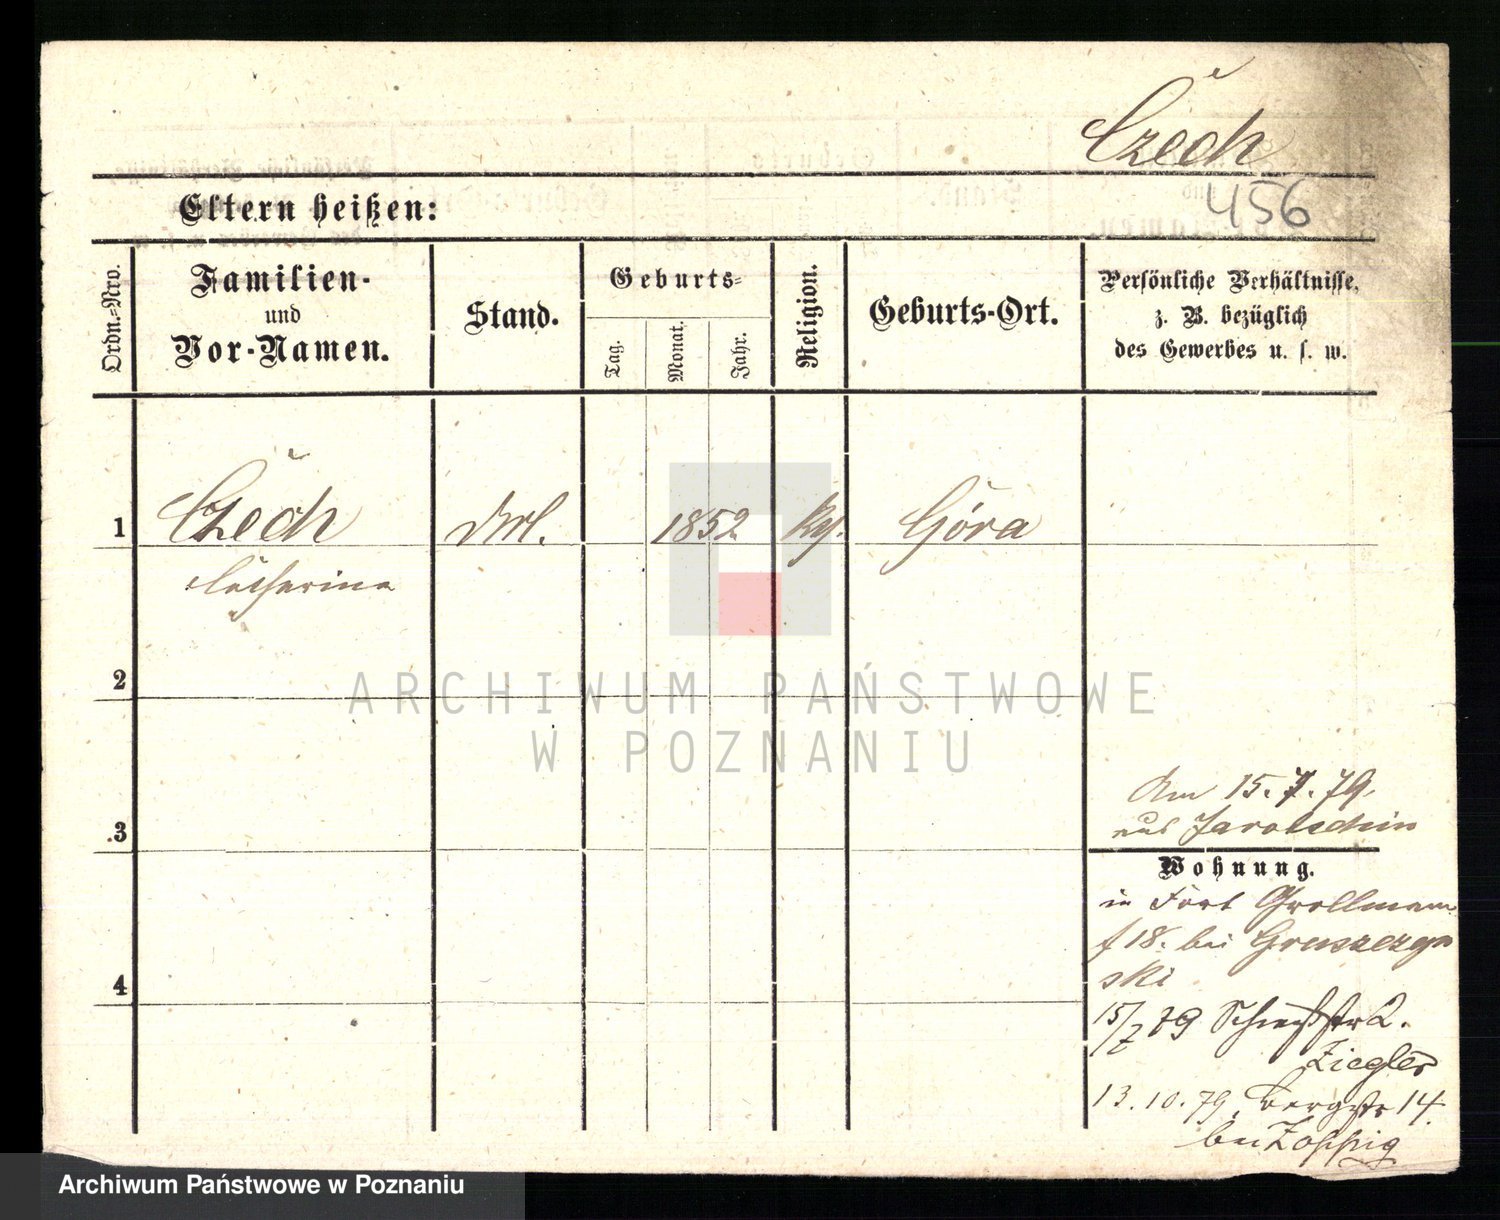 Czech
456
Eltern heißen:
Ordn.-Nro.
Familien-
und
Vor-Namen.
Stand.
Geburts-
Tag.
Monat.
Jahr.
Religion.
Geburts-Ort.
Persönliche Verhältnisse,
z. B. bezüglich
des Gewerbes u. s. w.
1
Czech
1852
Góra
Catharina
2
ARCHIWUM PAŃSTWOWE
W POZNANIU
Am 15.7.79.
aus Jarotschin
3
Wohnung.
in Fort Grollmann
f 18. bei Gruszczyn
ski
4
15/7 79 Schießstr 2.
Ziegler
13.10.79. Bergstr 14.
bei Zoppig
Archiwum Państwowe w Poznaniu